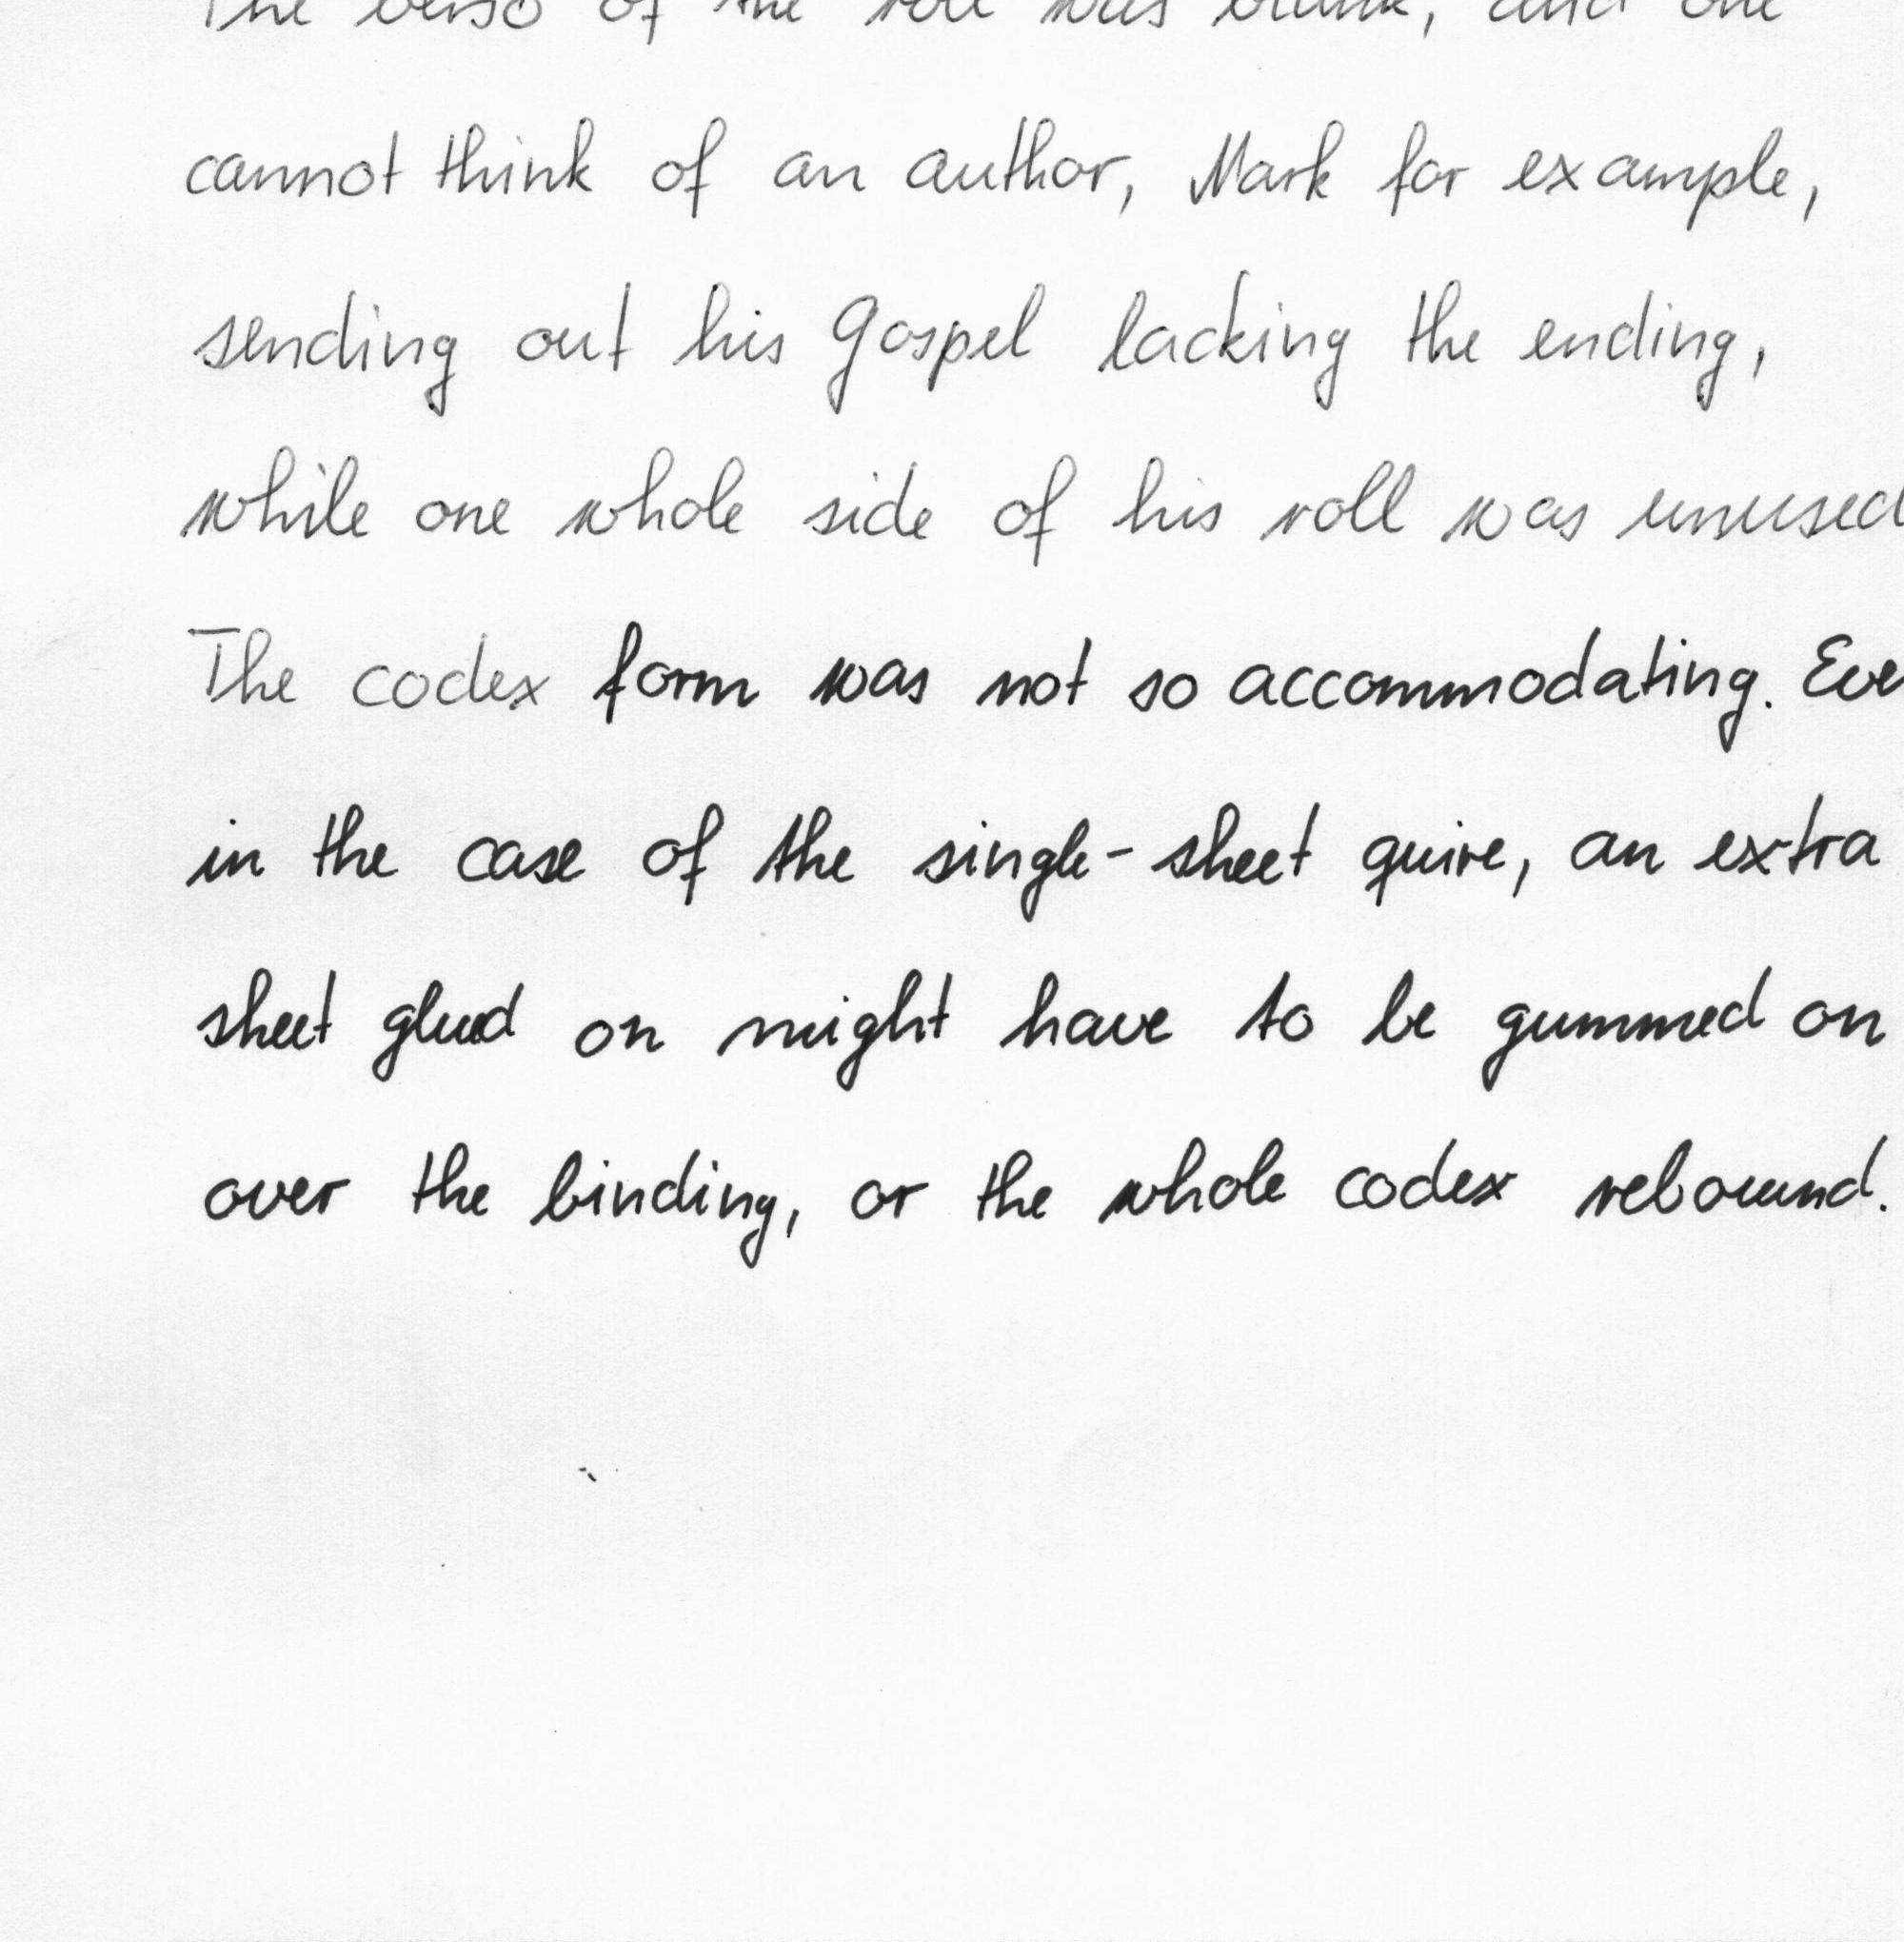 The verso of the roll was blank, and one
cannot think of an author, Mark for example,
sending out his Gospel lacking the ending,
while one whole side of his roll was unused
The codex form was not so accommodating. Eve
in the case of the single-sheet quire, an extra
sheet glued on might have to be gummed on
over the binding, or the whole codex rebound.